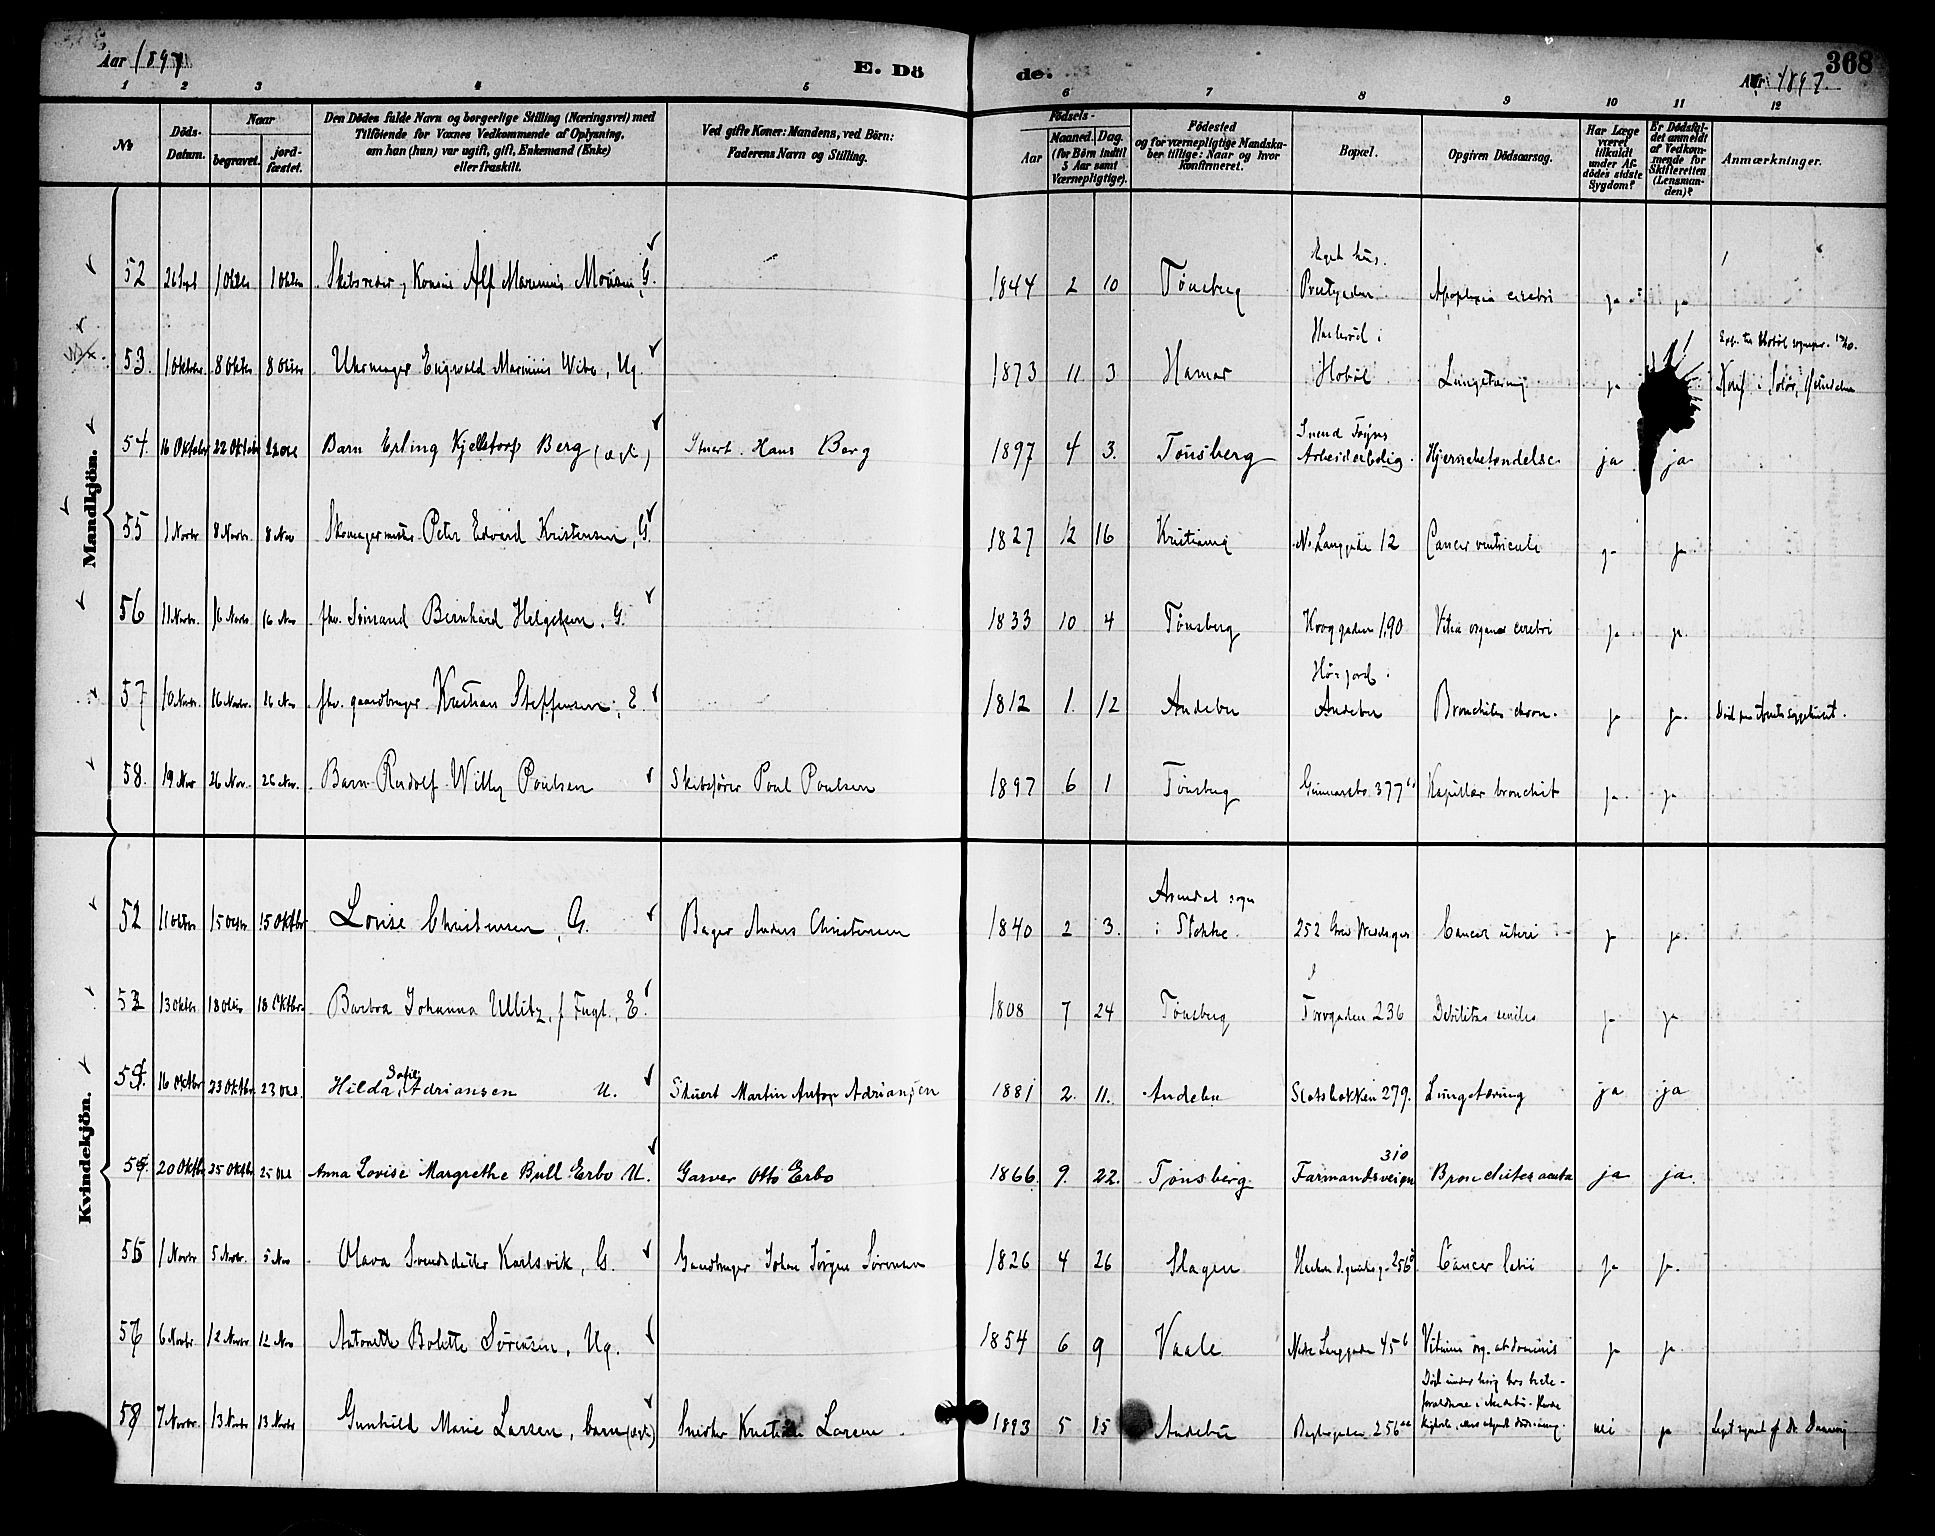 Aar 1897
E. Dö
de.
368
Aar 1897.
1 2 3 4 5 6 7 8 9 10 11 12
No
Döds-Datum.
Naar
begravet.
jord-fæstet.
Den Dödes fulde Navn og borgerlige Stilling (Næringsvei) med
Tilföiende for Voxnes Vedkommende af Oplysning,
om han (hun) var ugift, gift, Enkemand (Enke)
eller fraskilt.
Ved gifte Koner: Mandens, ved Börn:
Faderens Navn og Stilling.
Födsels-
Aar
Maaned. Dag.
(for Börn indtil
5 Aar samt
Værnepligtige).
Födested
og for værnepligtige Mandska-
ber tillige: Naar og hvor
konfirmeret.
Bopæl.
Opgiven Dödsaarsag.
Har Læge
været
tilkaldt
under Af-
dödes sidste
Sygdom?
Er Dödsfal-
det anmeldt
af Vedkom-
mende for
Skifteretten
(Lensman-
den)?
Anmærkninger.
Mandkjön.
52 26 Sept 1 Oktbr 1 Oktbr Skibsreder, Konsul Alf G. 1844 2 10 Tönsberg Eget hus. Apoplexia cerebri ja ja
53. 1 Oktbr 8 Oktbr 8 Oktbr Uhrmager Engvald Marinius Wibe, Ug. 1873 11 3 Hamar Hobøl Lungetæring ja
54. 16 Oktober 22 Oktober 22 Okt Barn Erling Kjellstorp Berg (ægte) Stuert Hans Berg 1897 4 3. Tönsberg Svend Foyns Arbeiderbolig. Hjernebetændelse ja ja
55 1 Novbr 8 Novbr. 8 Nov Skomagermester Peter Edvard Kristensen, G. 1827 12 16 Kristiania N. Langgade 12 Cancer ventriculi ja ja
56 11 Novbr. 16 Novbr 16 Nov fhv. Sömand Bernhard Helgesen, G. 1833 10 4 Tønsberg 190 Vitia organa cerebri ja ja.
57 10 Novbr. 16 Novbr. 16 Nov fhv. gaardbruger Kristian Steffensen, E 1812 1 12 Andebu Andebu Bronchitis chron. ja ja. Död paa Amtssygehuset.
58. 19 Nov 26 Nov. 26 Nov. Barn Rudolf Willy Poulsen Skibsfører Poul Poulsen 1897 6 1 Tönsberg 377 Kapillær bronchit ja ja
Kvindekjön.
52 11 Oktbr 15 Oktbr 15 Oktbr Lovise Christensen, G. Bager Anders Christensen 1840 2 3. Arendal sogn i Stokke. 252 Cancer uteri ja ja.
53 13 Oktbr 18 Oktbr 18 Oktbr. Barbra Johanna Ullitz, f. Fugl., E. 1808 7 24 Tönsberg Torvgaden 236 Debilitas senilis ja ja
54. 16 Oktbr 23 Oktbr. 23 Okt. Hilda Sofie Adriansen U. Stuert Martin Anton Adriansen 1881 2. 11. Andebu Slotsbakken 279. Lungetæring ja ja
55. 20 Oktbr 25 Oktbr 25 Okt Anna Lovise Margrethe Bull Erbo U. Garver Otto Erbo 1866. 9. 22. Tønsberg. Farmandsveien 310 Bronchites acuta ja ja.
56 1 Novbr 5 Novbr. 5 Nov Olava Svendsdatter Karlsvik, G. Gaardbruger Johan Jörgen Sörensen 1826 4 26 Slagen 256 Cancer labii ja ja.
57 6 Novbr. 12 Novbr 12 Nov Antonette Bolette Sörensen, Ug. 1854 6 9 Vaale Nedre Langgade 45 b Vitium org. abdominis ja ja
58 7 Novbr. 13 Novbr 13 Novbr Gunhild Marie Larsen, barn (ægte) Snedker Kristian Larsen. 1893 5 15 Andebu 256 nei ja